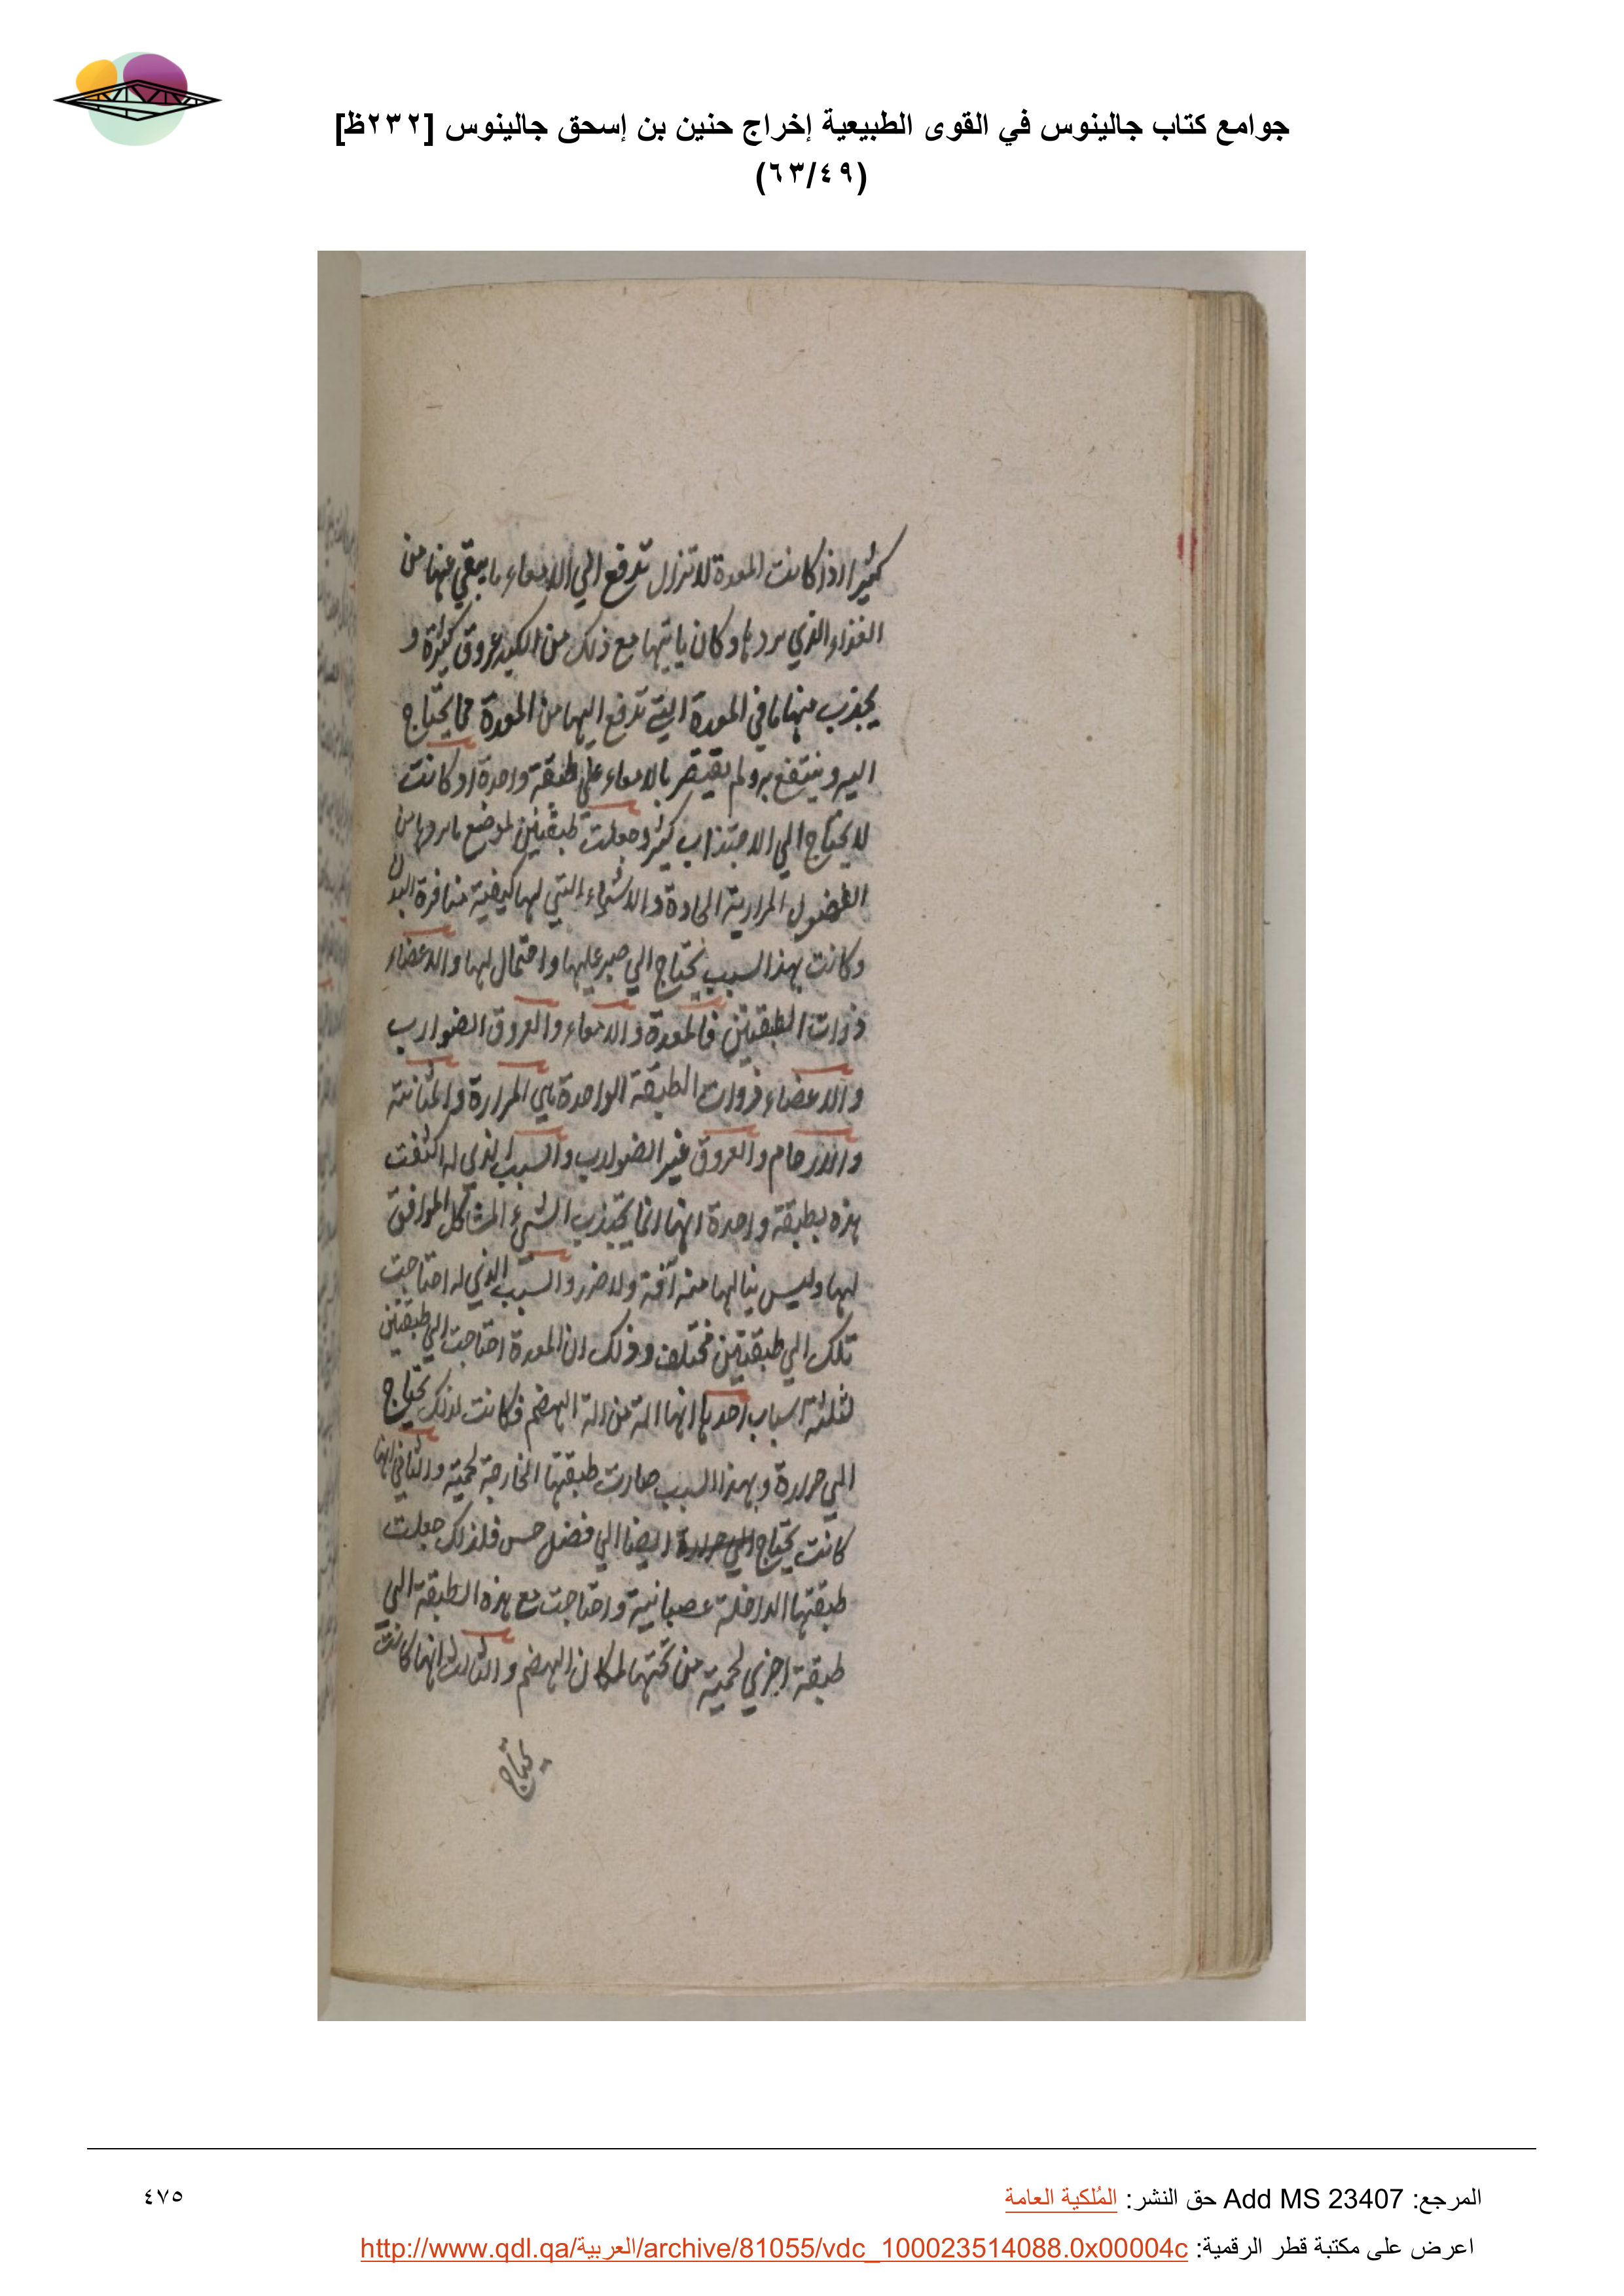 جوامع كتاب جالينوس في القوى الطبيعية إخراج حنين بن إسحق جالينوس [٢٣٢ظ]
(٦٣/٤٩)
كثيرا اذ كانت المعدة لا تزال تدفع الي الامعاء ما يبقي عنها من
الغذاء الذي يردها وكان ياتيها مع ذلك من الكبد عروق كثيرة و
يجذب منها ما في المعدة التي تدفع اليها من المعدة مما يحتاج
اليه وينتفع به ولم يقتصر بالامعاء علي طبقة واحدة اذ كانت
لا يحتاج الي الاجتذاب كثير وجعلت طبقتين لموضع ما يردها من
الفضول المرارية الحادة والاشياء التي لها كيفية منافرة البدن
وكانت بهذا السبب يحتاج الي صبر عليها واحتمال لها والاعضاء
ذوات الطبقتين فالمعدة والامعاء والعروق الضوارب
والاعضاء ذوات الطبقة الواحدة هي المرارة والمثانة
والارحام والعروق غير الضوارب والسبب الذي له اكتفت
هذه بطبقة واحدة انها انما يجتذب الشيء المشاكل الموافق
لها وليس ينالها منه آفة ولا ضرر والسبب الذي له احتاجت
تلك الي طبقتين مختلف وذلك ان المعدة احتاجت الي طبقتين
لثلثة اسباب احدها انها الة من الة الهضم فكانت لذلك يحتاج
الي حرارة وبهذا السبب صارت طبقتها الخارجة لحمية والثاني انها
كانت يحتاج الي حرارة ايضا الي فضل حس فلذلك جعلت
طبقتها الداخلة عصبانية واحتاجت مع هذه الطبقة الي
طبقة اخري لحمية من تحتها لمكان الهضم والثالث انها كانت
يحتاج
المرجع: Add MS 23407 حق النشر: المُلكية العامة
٤٧٥
اعرض على مكتبة قطر الرقمية: http://www.qdl.qa/العربية/archive/81055/vdc_100023514088.0x00004c